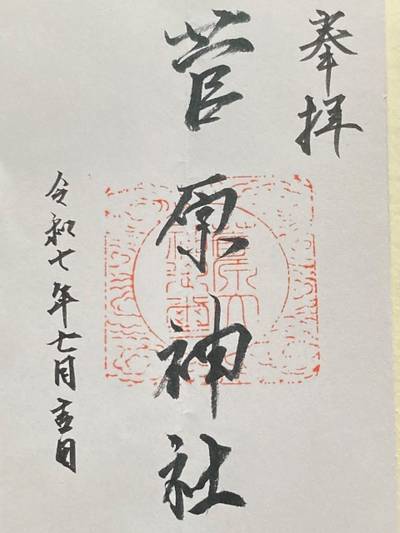 奉拝
菅原神社
令和七年七月五日